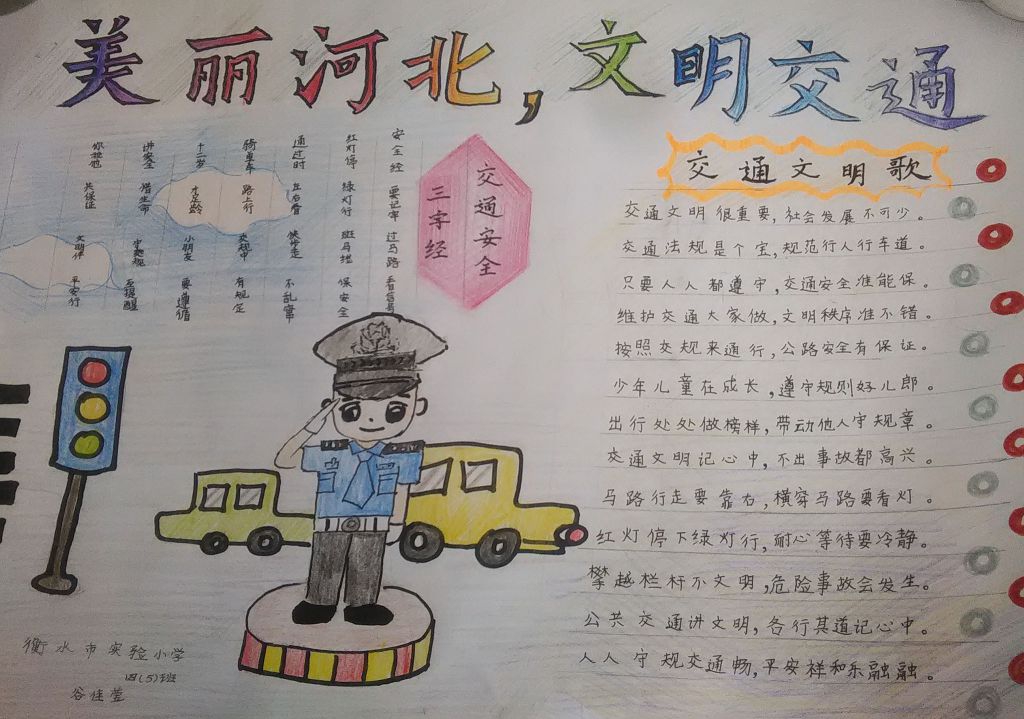 美丽河北,文明交通
交通安全
三字经
安全经 要记牢 过马路 看信号
红灯停 绿灯行 斑马线 保安全
通过时 左右看 快步走 不乱穿
骑单车 路上行 有规定
十二岁 才足龄 小朋友 要遵循
讲安全 惜生命 互提醒
你我他 共保证 文明伴 平安行
交通文明歌
交通文明很重要,社会发展不可少。
交通法规是个宝,规范行人行车道。
只要人人都遵守,交通安全准能保。
维护交通大家做,文明秩序准不错。
按照交规来通行,公路安全有保证。
少年儿童在成长,遵守规则好儿郎。
出行处处做榜样,带动他人守规章。
交通文明记心中,不出事故都高兴。
马路行走要靠右,横穿马路要看灯。
红灯停下绿灯行,耐心等待要冷静。
攀越栏杆不文明,危险事故会发生。
公共交通讲文明,各行其道记心中。
人人守规交通畅,平安祥和乐融融。
衡水市实验小学
四(5)班
谷佳莹